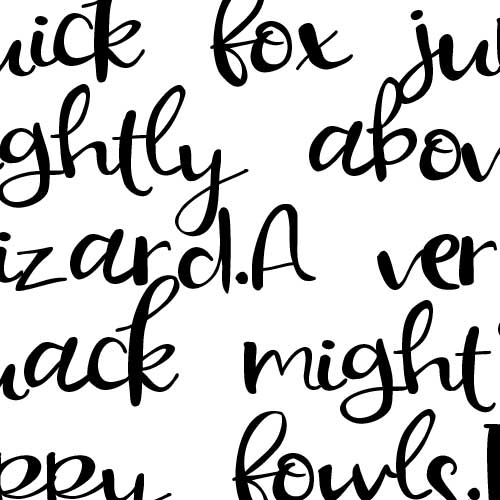 uick fox ju
ghtly abov
izard.A ver
uack might
ppy fowls.